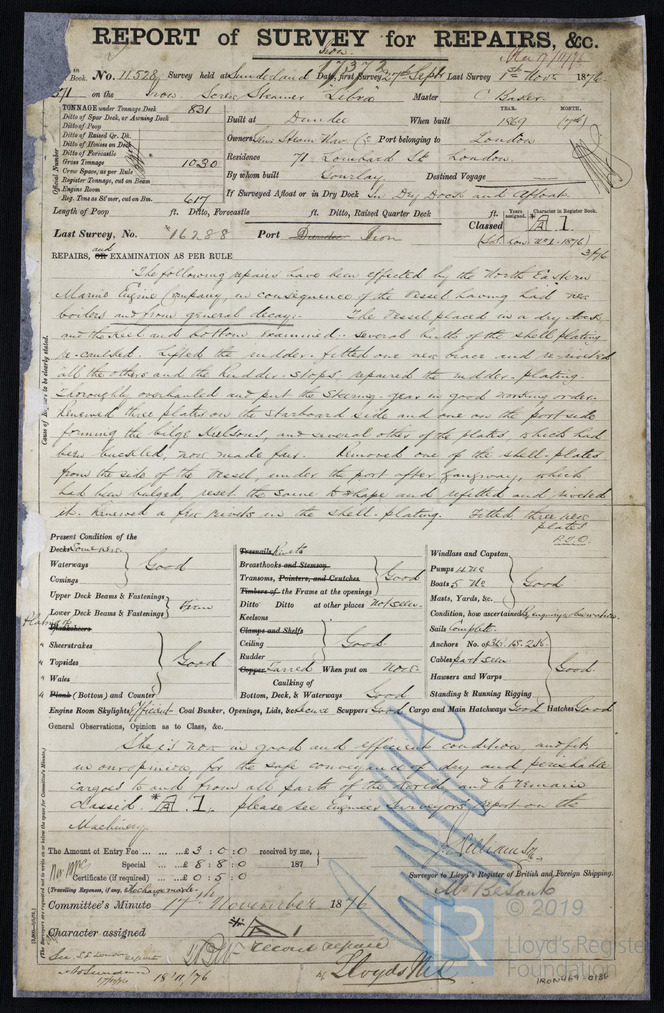 REPORT of SURVEY for REPAIRS, &c.
Iron
17373
in Book. No. 11.528, Survey held at Sunderland Date, first Survey, 27th Sept Last Survey 1st Novr 1876
571 on the Iron Screw Steamer "Libra" Master C Baker.
TONNAGE under Tonnage Deck 831
Ditto of Spar Deck, or Awning Deck
Ditto of Poop
Ditto of Raised Qr. Dk.
Ditto of Houses on Deck
Ditto of Forecastle
Gross Tonnage 1030
Crew Space, as per Rule
Register Tonnage, cut on Beam
Engine Room
Reg. Tons as St'mer, cut on Bm. 617
Official Number
Built at Dundee When built YEAR. 1869 MONTH. (7th)
Owners Genl Steam Nav. Co Port belonging to London
Residence 71 Lombard St London.
By whom built Gourlay Destined Voyage
If Surveyed Afloat or in Dry Dock In Dry Dock and Afloat
Length of Poop ft. Ditto, Forecastle ft. Ditto, Raised Quarter Deck ft.
Years assigned. Character in Register Book.
Classed A 1
Last Survey, No. 16288 Port Dundee Iron
3/76
REPAIRS, and OR EXAMINATION AS PER RULE
The following repairs have been effected by the North Eastern
Marine Engine Company, in consequence of the Vessel having had new
boilers and from general decay:- The Vessel placed in a dry dock
and the keel and bottom examined: several butts of the shell plating
re-caulked. Lifted the rudder, fitted one new brace and re-riveted
all the others and the Rudder-Stops, repaired the rudder-plating.
Thoroughly overhauled and put the Steering gear in good working order.
Renewed three plates on the Starboard side and one on the port side
forming the bilge Keelsons, and several other of the plates, which had
been buckled, now made fair. Removed one of the shell-plates
from the side of the Vessel, under the port after gangway, which
had been bulged, reset the same to shape and refitted and riveted
it. Renewed a few rivets in the shell-plating. Fitted three new
plates
P.T.O.
Present Condition of the
Decks Some new
Waterways
Comings
Good
Upper Deck Beams & Fastenings
Lower Deck Beams & Fastenings
Firm
Plating of
Planksheers
" Sheerstrakes
" Topsides
" Wales
" Plank (Bottom) and Counter
Good
Treenails Rivets
Breasthooks and Stemson
Transoms, Pointers, and Crutches
Timbers of the Frame at the openings
Good
Ditto Ditto at other places not seen.
Keelsons
Clamps and Shelfs
Ceiling
Rudder
Good.
Copper Tarred When put on Novr.
Caulking of
Bottom, Deck, & Waterways Good
Windlass and Capstan
Pumps
Boats 5 No
Masts, Yards, &c.
Good
Condition, how ascertained By enquiry & observation.
Sails Complete.
Anchors No. of 3B. 1S. 2K.
Cables part seen
Hawsers and Warps
Standing & Running Rigging
Good.
Engine Room Skylights Efficient Coal Bunker, Openings, Lids, &c. Scuppers Good Cargo and Main Hatchways Good Hatches Good
General Observations, Opinion as to Class, &c.
She is now in good and efficient condition, and fit,
in our opinion, for the safe conveyance of dry and perishable
cargoes to and from all parts of the World and to remain
Classed. A 1. please see Engineer Surveyors report on the
Machinery.
The Amount of Entry Fee £ 3:0:0 received by me,
Special £ 8:8:0 187
Certificate (if required) £ 0:5:0
(Travelling Expenses, if any, No charge made.)
J. Williamson
Surveyor to Lloyd's Register of British and Foreign Shipping.
Committee's Minute 17th November 1876
Character assigned A 1
record repairs
18/11/76
Lloyds
© 2019
LR
Lloyd's Register
Foundation
IRON469-0186